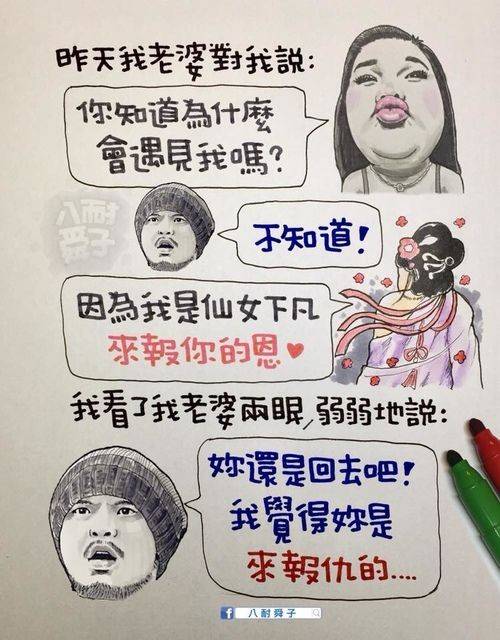 昨天我老婆對我說:
你知道為什麼
會遇見我嗎?
八耐
舜子
不知道!
因為我是仙女下凡
來報你的恩♥
我看了我老婆兩眼,弱弱地說:
妳還是回去吧!
我覺得妳是
來報仇的....
f 八耐舜子